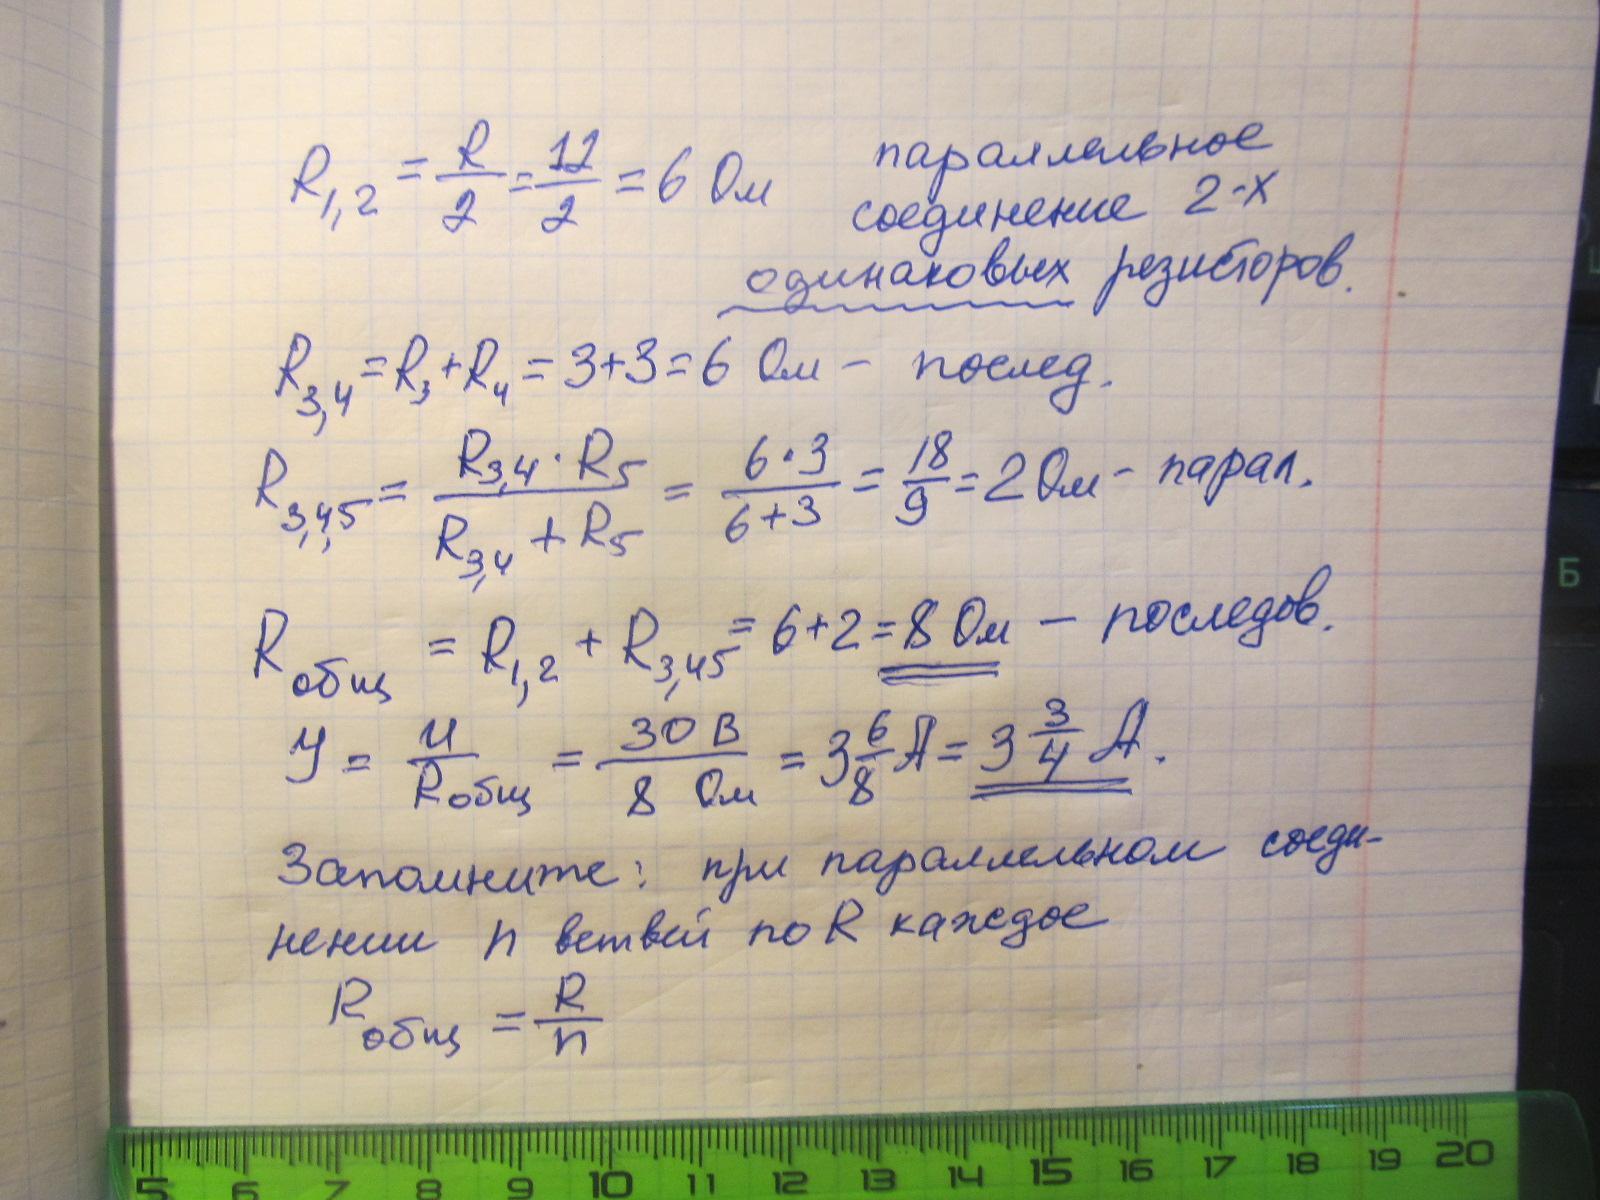 R1,2 = R/2 = 12/2 = 6 Ом
параллельное
соединение 2-х
одинаковых резисторов.
R3,4 = R3 + R4 = 3+3 = 6 Ом – послед.
R3,4,5 = R3,4 · R5 / R3,4 + R5 = 6·3 / 6+3 = 18/9 = 2 Ом – парал.
Rобщ = R1,2 + R3,45 = 6+2 = 8 Ом – последов.
У = U/Rобщ = 30 В / 8 Ом = 3 6/8 А = 3 3/4 А.
Запомните: при параллельном соеди-
нении n ветвей по R каждое
Rобщ = R/n
Б
5 6 7 8 9 10 11 12 13 14 15 16 17 18 19 20